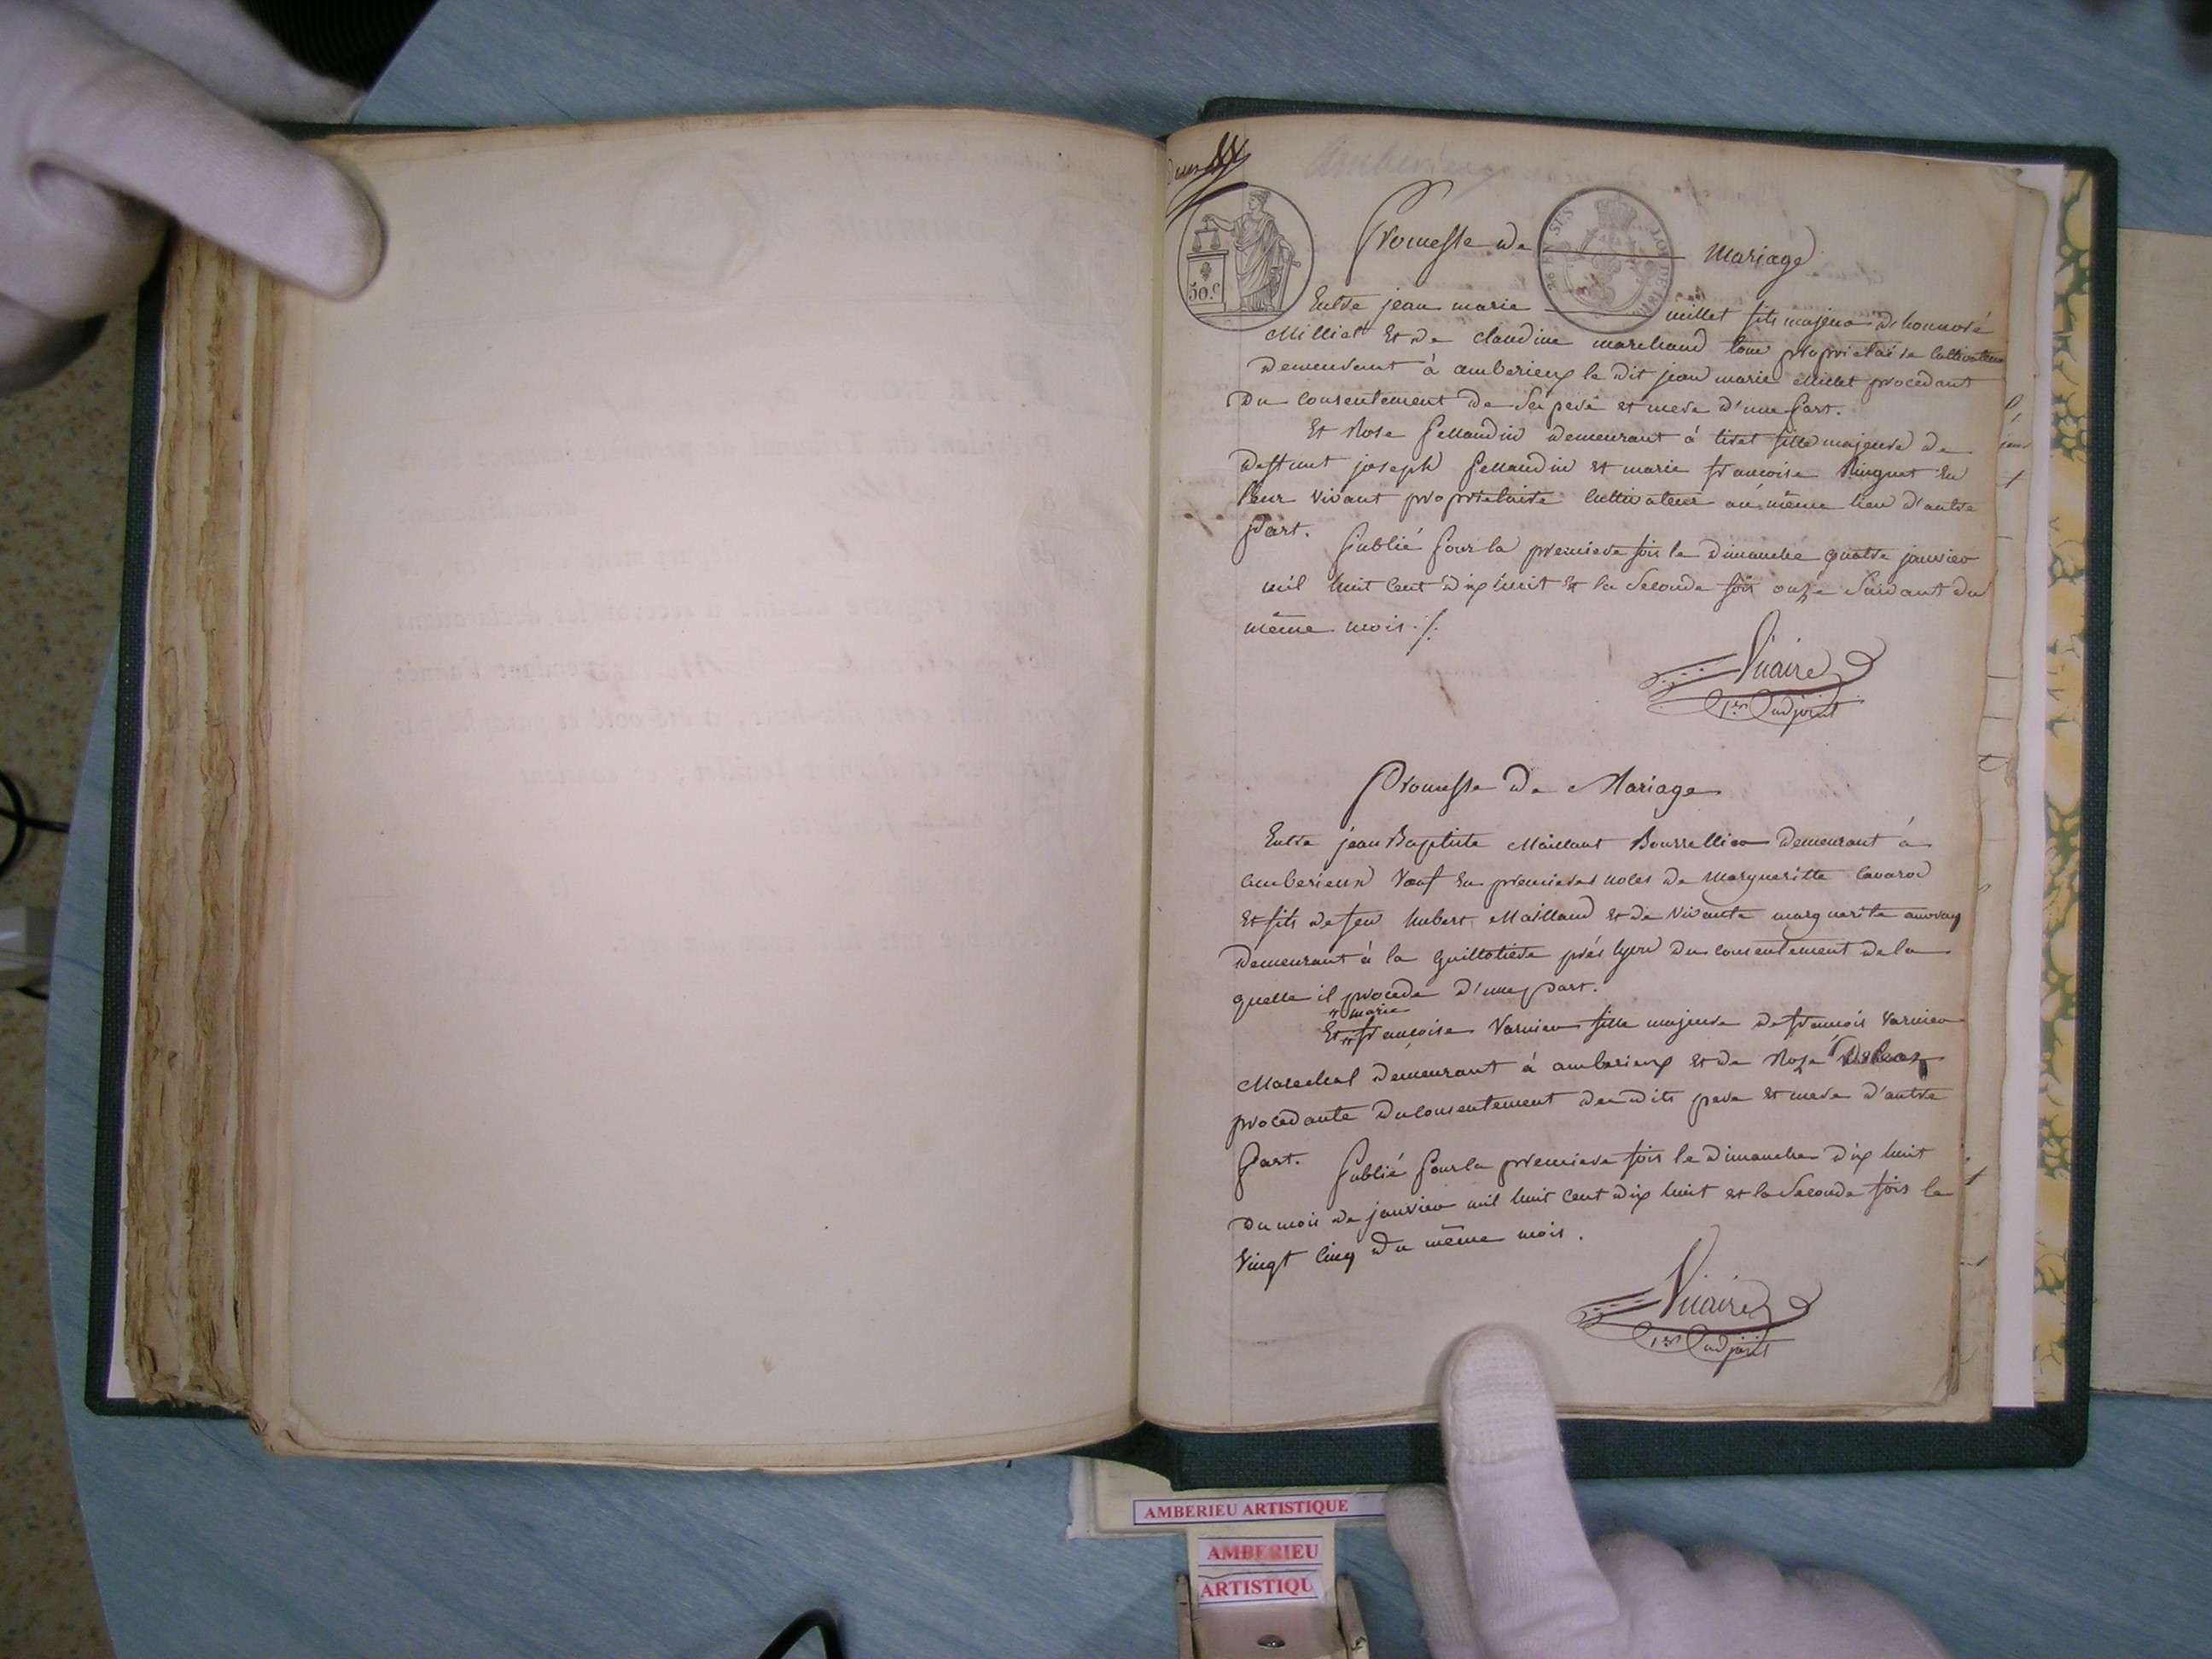 Promesse de mariage
50.c
Entre jean marie millet fils majeur d'honnoré
Milliet et de claudine marchand tous proprietaire Cultivateur
demeurant à amberieux le dit jean marie Millet procedant
du consentement de ses pere et mere d'une part.
Et Rose Pellaudin demeurant à tiret fille majeure de
deffunt joseph Pellaudin et marie francoise Ringuet en
leur vivant proprietaire cultivateur au même lieu d'autre
part. Publié pour la premiere fois le dimanche quatre janvier
mil huit cent dix huit et la seconde fois onze suivant du
même mois ./.
Vicaire
1er adjoint
Promesse de Mariage
Entre jean Baptiste Maillant Bourrellier demeurant à
amberieux veuf en premieres noces de margueritte cavarod
et fils de feu hubert Mailland et de vivante marguerite
demeurant à la guillotiere près lyon du consentement de la
quelle il procede d'une part.
marie
Et francoise Varnier fille majeure de francois Varnier
Marechal demeurant à amberieux et de Roze
procedante du consentement des dits pere et mere d'autre
part. Publié pour la premiere fois le dimanche dix huit
du mois de janvier mil huit cent dix huit et la seconde fois le
vingt cinq du même mois.
Vicaire
1er adjoint
AMBERIEU ARTISTIQUE
AMBERIEU
ARTISTIQU